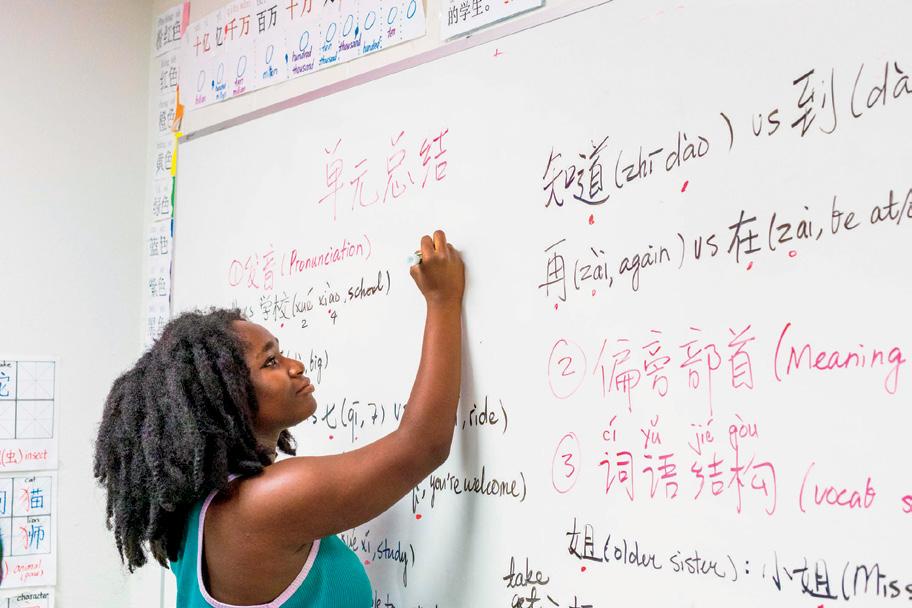 的学生。
十亿 亿 千万 百万 十万
million hundred thousand ten thousand thousand hundred ten
粉红色
红色
橙色
黄色
绿色
蓝色
紫色
单元总结
①发音 (Pronunciation)
vs 学校 (xué xiào, school)
2 4
big)
七 (qī, 7)
, ride)
, you're welcome)
xí, study)
take
知道 (zhī dào) vs 到 (dà
再 (zài, again) vs 在 (zài, be at/
② 偏旁部首 (Meaning
cí yǔ jié gòu
③ 词语结构 (vocab s
姐 (older sister): 小姐 (Miss
(虫) insect
cat
猫
lion
师
animal
character